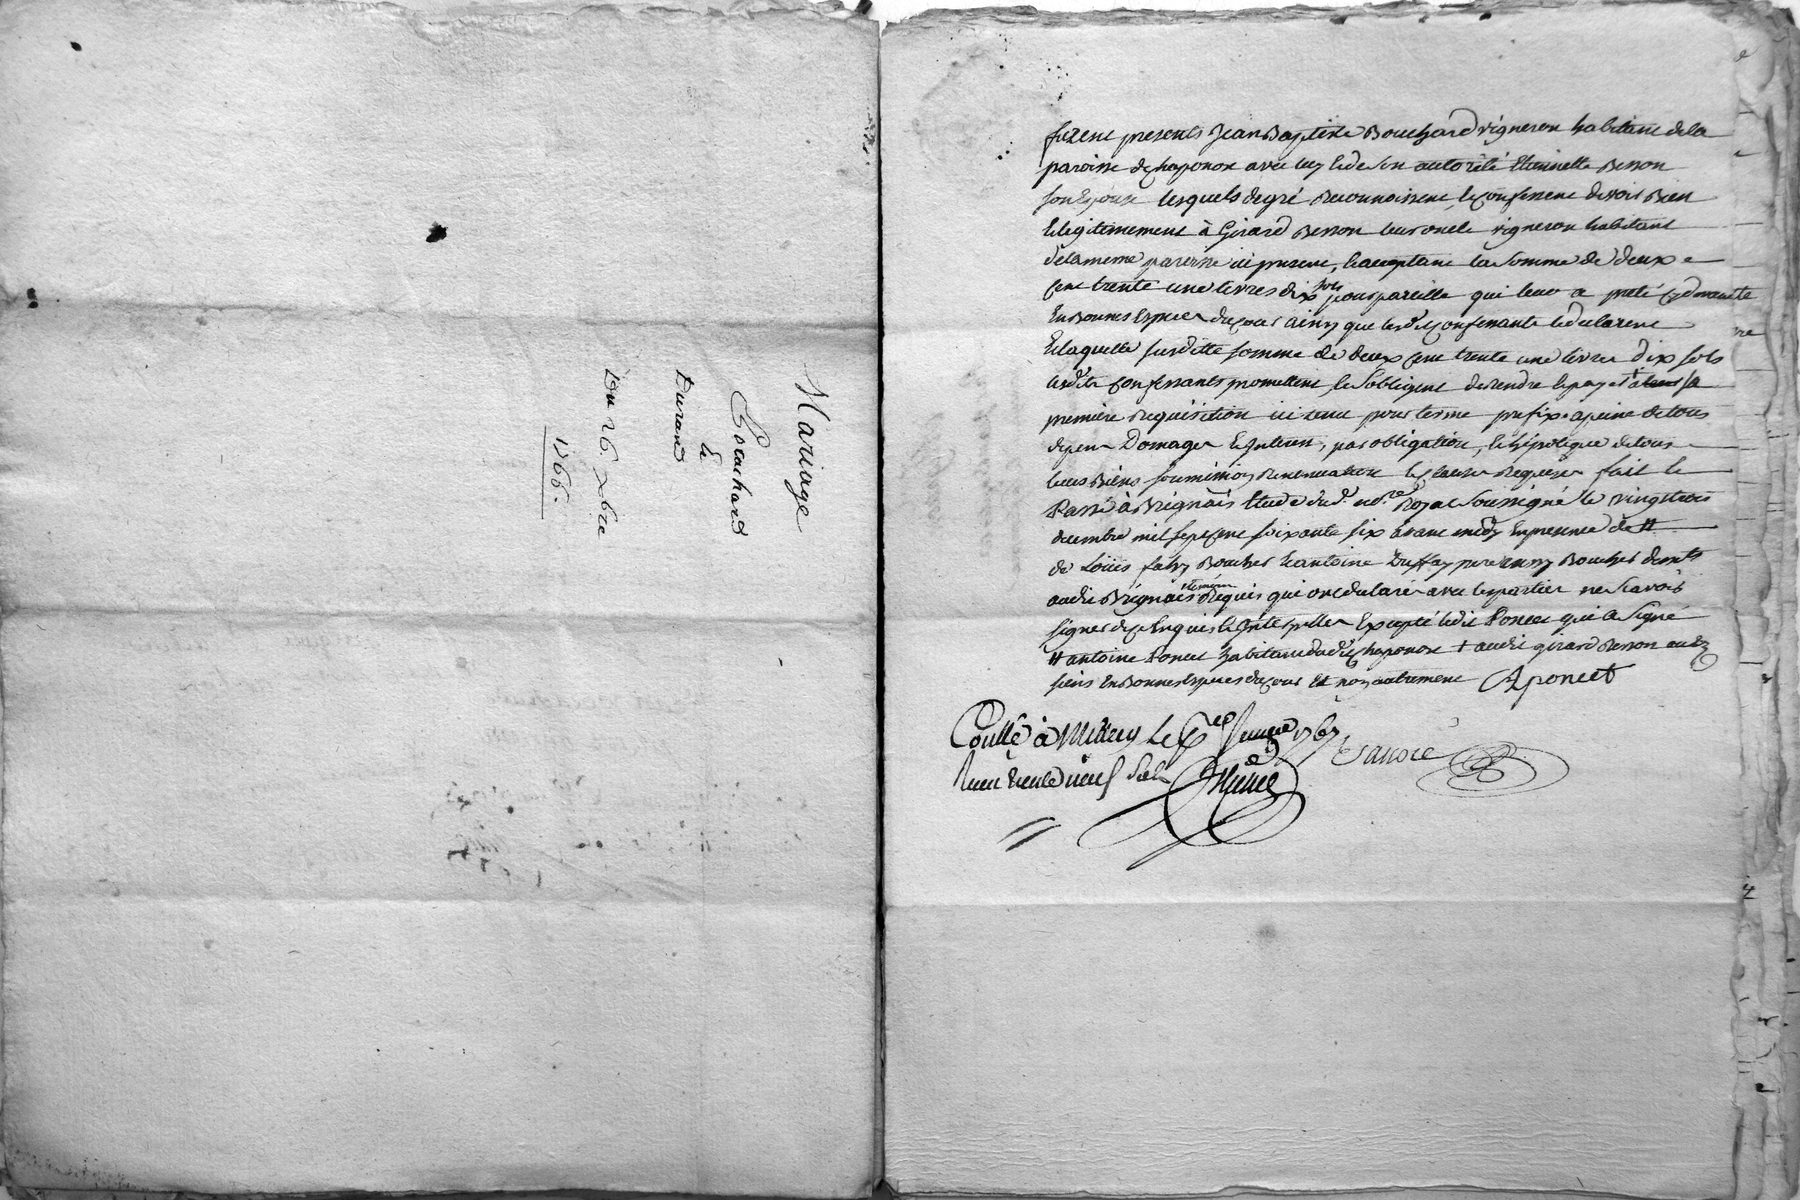 Mariage
Cocuhard
et
Durand
Du 26 xbre
1766.
furent presents Jean Baptiste Bouchard vigneron habitant de la
paroisse de chaponox avec luy et de son autorité Etiennette Besson
son Epouse lesquels de gré reconnoissent et confessent devoir Bien
et legitimement à Girard Besson leur oncle vigneron habitant
de la meme paroisse ici present, et acceptant la somme de deux
cent trente une livres dix sols pour pareille qui leur a preté
En Bonnes Especes du jour ainsy que lesd. confessants le declarent
Et laquelle susditte somme de deux cent trente une livres dix sols
lesdts confessants promettent et s'obligent de rendre et payer + a sa
premiere requisition ici tenu pour terme prefix a peine de tous
depens Domages et Interets, par obligation, et hipotéque de tous
leurs Biens soumissions renonciations et clauses requises fait et
Passé à Brignais Etude dud. no.re Royal soussigné le vingt trois
decembre mil sept cent soixante six avant midy En presence de #
de Loüis fahy Boucher et antoine Duffay pere aussy Boucher demts
audit Brignais temoins requis qui ont declarés avec les parties ne scavoir
signer de ce Enquis et Interpellés Excepté ledit Poncet qui a signé
# antoine Poncet habitant dudit chaponox + audit girard Besson ou aux
siens En Bonnes Especes du jour Et non autrement APoncet
Conllé à Millery le 6 Janvier 1767
Reçu trente neuf sols